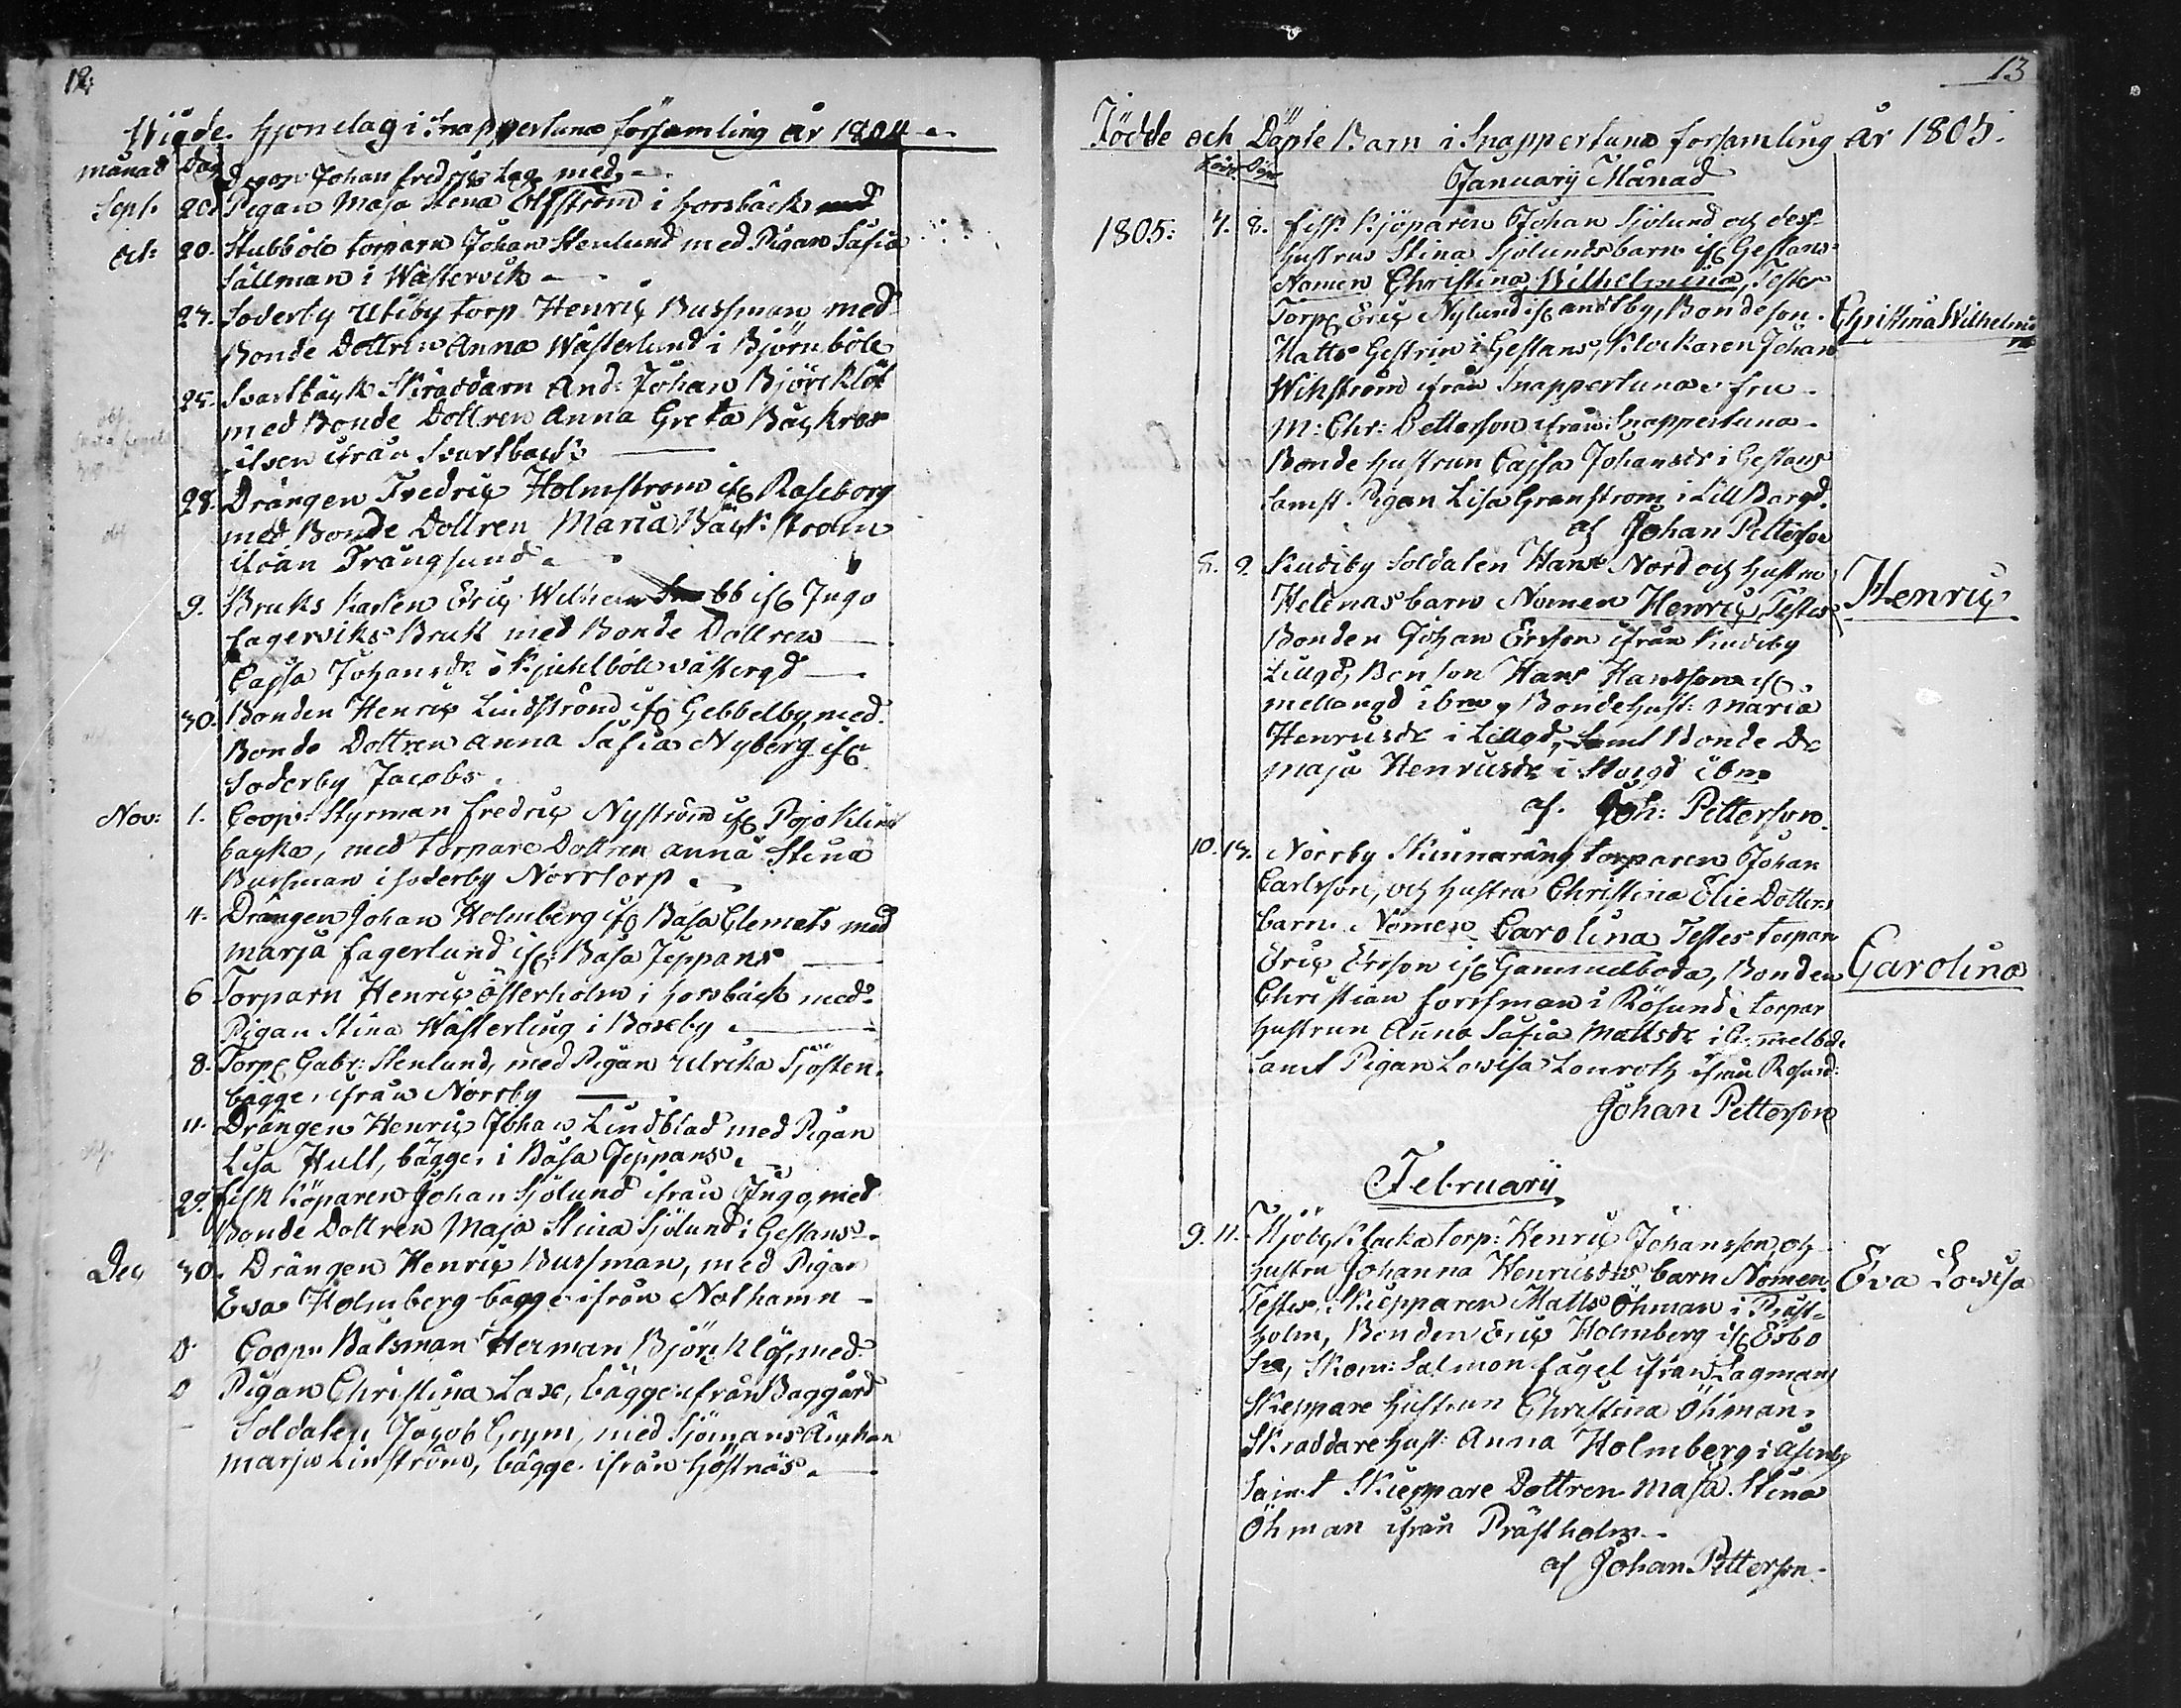 12.
Wigde Hjonelag i Snappertuna församling år 1804
månad Dag
Johan Fredric Lax med
Sept. 20. Pigan Maja Stena Elfström i Horsbäck
Oct: 20. Stubböle torparn Johan Stenlund med Pigan Safia
Sällman i Wästervik
24. Soderby Utäby torp Henric Bussman med
Bonde Dottren Anna Wästerlund i Björnböle
25. Svartbäck Skräddarn And: Johan Björcklöf
med Bonde Dottren Anna Greta Bäck
ifrån Svartback
28. Drängen Fredric Holmstrom if Raseborg
med Bonde Dottren Maria Bäckstrom
ifrån Trångsund
9. Bruks Karlen Eric Wilhelm if Ingo
Fagerviks Bruk med Bonde Dottren
Cajsa Johansdr i Kjuhlböle västergd
30. Bonden Henric Lindström if Gebbelby, med
Bonde Dottren Anna Safia Nyberg if
Soderby Jacobs
Nov: 1. Coop: Styrman Fredric Nyström if Pojo Klin
backa, med torpare Dottren Anna Stina
Bussman i soderby Norrtorp
4. Drängen Johan Holmberg if Båsa Clemets med
Marja Fagerlund if Båsa Jeppans
6 Torparn Henric Österholm i Horsbäck med
Pigan Stina Wästerling i Boxeby
8. Torp Gabr: Stenlund, med Pigan Ulrika Sjösten
bägge ifrån Norrby
11. Drängen Henric Johan Lindblad med Pigan
Lisa Hult, bägge i Båsa Jeppans
29. Fisk Köparen Johan Sjölund ifrån Ingo, med
Bonde Dottren Maja Stina Sjölund i Gestans
Dec 30. Drängen Henric Bussman, med Pigan
Eva Holmberg bägge ifrån Nothamn
Coop: Båtsman Herman Björcklöf, med
Pigan Christina Lax, bägge ifrån Baggård
Soldaten Jacob Grym, med Sjömans Änkan
Marja Linström, bägge ifrån Höstnäs
13
Födde och Döpte Barn i Snappertuna forsamling år 1805.
Född Döpt
January Månad
1805: 4. 8. Fisk Kjöparen Johan Sjölund och dess
Hustrus Stina Sjölunds barn if Gestans
Nomen Christina Wilhelmina, Testes
Torp Eric Nylund if andtby, Bondeson
Matts Gestrin i Gestans, Klockaren Johan
Wikström ifrån Snappertuna Fru
M: Chr: Petterson ifrån Snappertuna
Bonde Hustrun Cajsa Johansdr i Gestans
samt Pigan Lisa Granstrom i Lill Bårgd.
af Johan Petterson
Christina Wilhelmi
na
8. 9. Kudeby Soldaten Hans Nord och Hustru
Helenas barn Nomen Henric Testes
Bonden Johan Ersson ifrån Kudeby
Lillgd, Bonson Hans Hansson if
mellangd ibm, Bondehust: Maria
Henricsdr i Lillgd, samt Bonde Dr
Maja Henricsdr i Storgd ibm
af. Joh: Petterson
Henric
10. 14. Norrby Skinnaräng torparen Johan
Carlsson, och Hustru Christina Elie Dotters
barn Nomen Carolina Testes torparn
Eric Ersson if Gammelboda, Bonden
Christian Forssman i Rösund, torpar
Hustrun Anna Safia Mattsdr i Gammelbda
samt Pigan Lovisa Lonroth ifrån Rosund
Johan Petterson
Carolina
February
9. 11. Kjöby Klacka torp: Henric Johansson och
Hustru Johanna Henricsdrs barn Nomen
Testes, Skepparen Matts Öhman i Präst-
holm, Bonden Eric Holmberg if Esbo
Skom: Salmon Fagel ifrån Lagmans
Skeppare Hustrun Christina Öhman,
Skraddare Hust: Anna Holmberg i
samt Skieppare Dottren Maja Stina
Öhman ifrån Prästholm
af Johan Petterson
Eva Lovisa